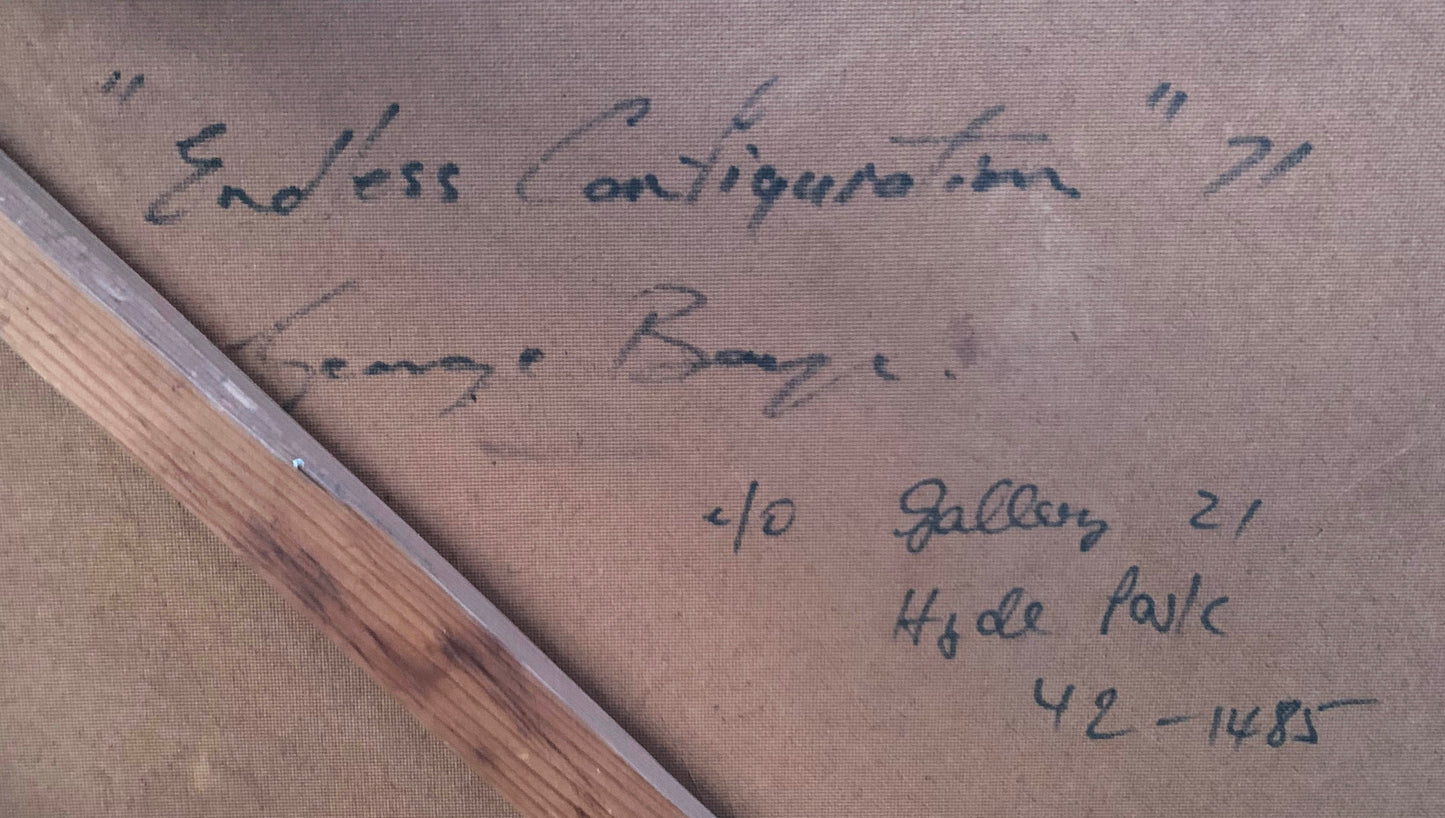 "Endless Configuration" 71
George Boys.
c/o Gallery 21
Hyde Park
42-1485